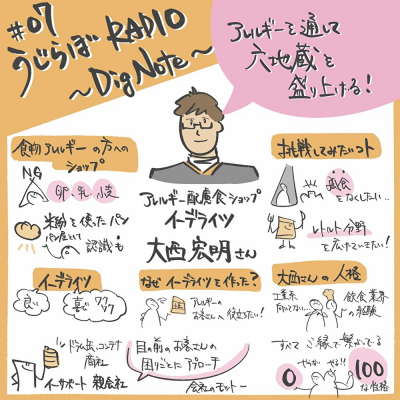 #07
うじらぼRADIO
～Dig Note～
アレルギーを通して
六地蔵を
盛り上げる!
食物アレルギーの方への
ショップ
NG
卵・乳・小麦
米粉を使ったパン
パン屋として
認識も
アレルギー配慮食ショップ
イーデライツ
大西宏明さん
挑戦してみたいコト
孤食
をなくしたい…
レトルト分野
を広げていきたい!
イーデライツ
良い
喜び
ワクワク
ドラム缶、コンテナ
商社
イーサポート 親会社
なぜイーデライツを作った?
アレルギーの
お客さんへ役立ちたい!
目の前のお客さんの
困りごとにアプローチ
会社のモットー
大西さんの人格
工業系
向いてない…
飲食業界
の経験
すべてご縁で繋がっている
やらない
やる!!
0
100
な性格